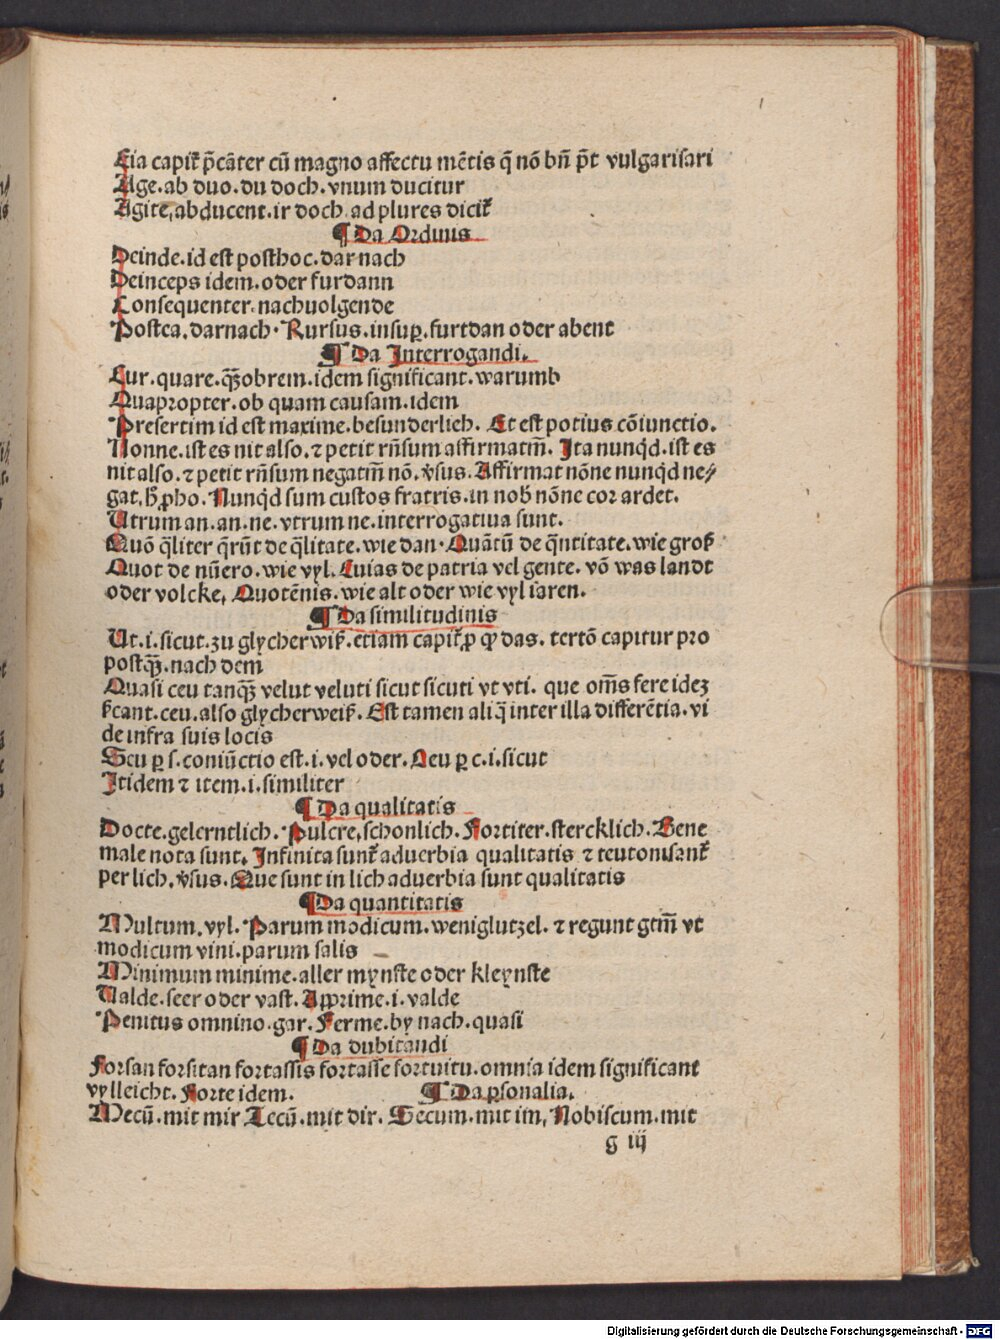 Eia capiť p̃cãter cũ magno affectu mẽtis q̃ nõ bñ p̃t vulgarisari
Age. ab duo. du doch. vnum ducitur
Agite, abducent. ir doch. ad plures diciť
¶ Da Ordinis
Deinde. id est posthoc. dar nach
Deinceps idem. oder furdann
Consequenter. nachuolgende
Postca. darnach. Rursus. insuꝑ. furtdan oder abent
¶ Da Interrogandi.
Cur. quare. qꝫobrem. idem significant. warumb
Quapropter. ob quam causam. idem
Presertim id est maxime. besunderlich. Et est potius cõiunctio.
Nonne. ist es nit also. ⁊ petit rñsum affirmatm̃. Ita nunqd. ist es
nit also. ⁊ petit rñsum negatm̃ nõ. v̾sus. Affirmat nõne nunqd ne⸗
gat. h̾ ꝓho. Nunqd sum custos fratris. in nob̾ nõne cor ardet.
Utrum an. an. ne. vtrum ne. interrogatiua sunt.
Quõ q̃liter q̃rũt de q̃litate. wie dan. Quãtũ de q̃ntitate. wie groß
Quot de nũero. wie vyl. Cuias de patria vel gente. võ was landt
oder volcke, Quotẽnis. wie alt oder wie vyl iaren.
¶ Da similitudinis
Ut. i. sicut. zu glycherwiß. etiam capiť ꝓ ꝙ das. tertõ capitur pro
postqꝫ. nach dem
Quasi ceu tanqꝫ velut veluti sicut sicuti vt vti. que om̃s fere ideꝫ
ẜcant. ceu. also glycherweiß. Est tamen aliq̃ inter illa differẽtia. vi
de infra suis locis
Seu ꝑ s. coniũctio est. i. vel oder. Ceu ꝑ c. i. sicut
Itidem ⁊ item. i. similiter
¶ Da qualitatis
Docte. gelerntlich. Pulcre, schonlich. Fortiter. stercklich. Bene
male nota sunt. Infinita sunt aduerbia qualitatis ⁊ teutonisanť
per lich. v̾sus. Que sunt in lich aduerbia sunt qualitatis
¶ Da quantitatis
Multum. vyl. Parum modicum. weniglutzel. ⁊ regunt gtm̃ vt
modicum vini. parum salis
Minimum minime. aller mynste oder kleynste
Valde. seer oder vast. Apprime. i. valde
Penitus omnino. gar. Ferme. by nach. quasi
¶ Da dubitandi
Forsan forsitan fortassis fortasse fortuitu. omnia idem significant
vylleicht. Forte idem. ¶ Da ꝑsonalia.
Mecũ. mit mir Tecũ. mit dir. Secum. mit im, Nobiscum. mit
g iij
Digitalisierung gefördert durch die Deutsche Forschungsgemeinschaft - DFG